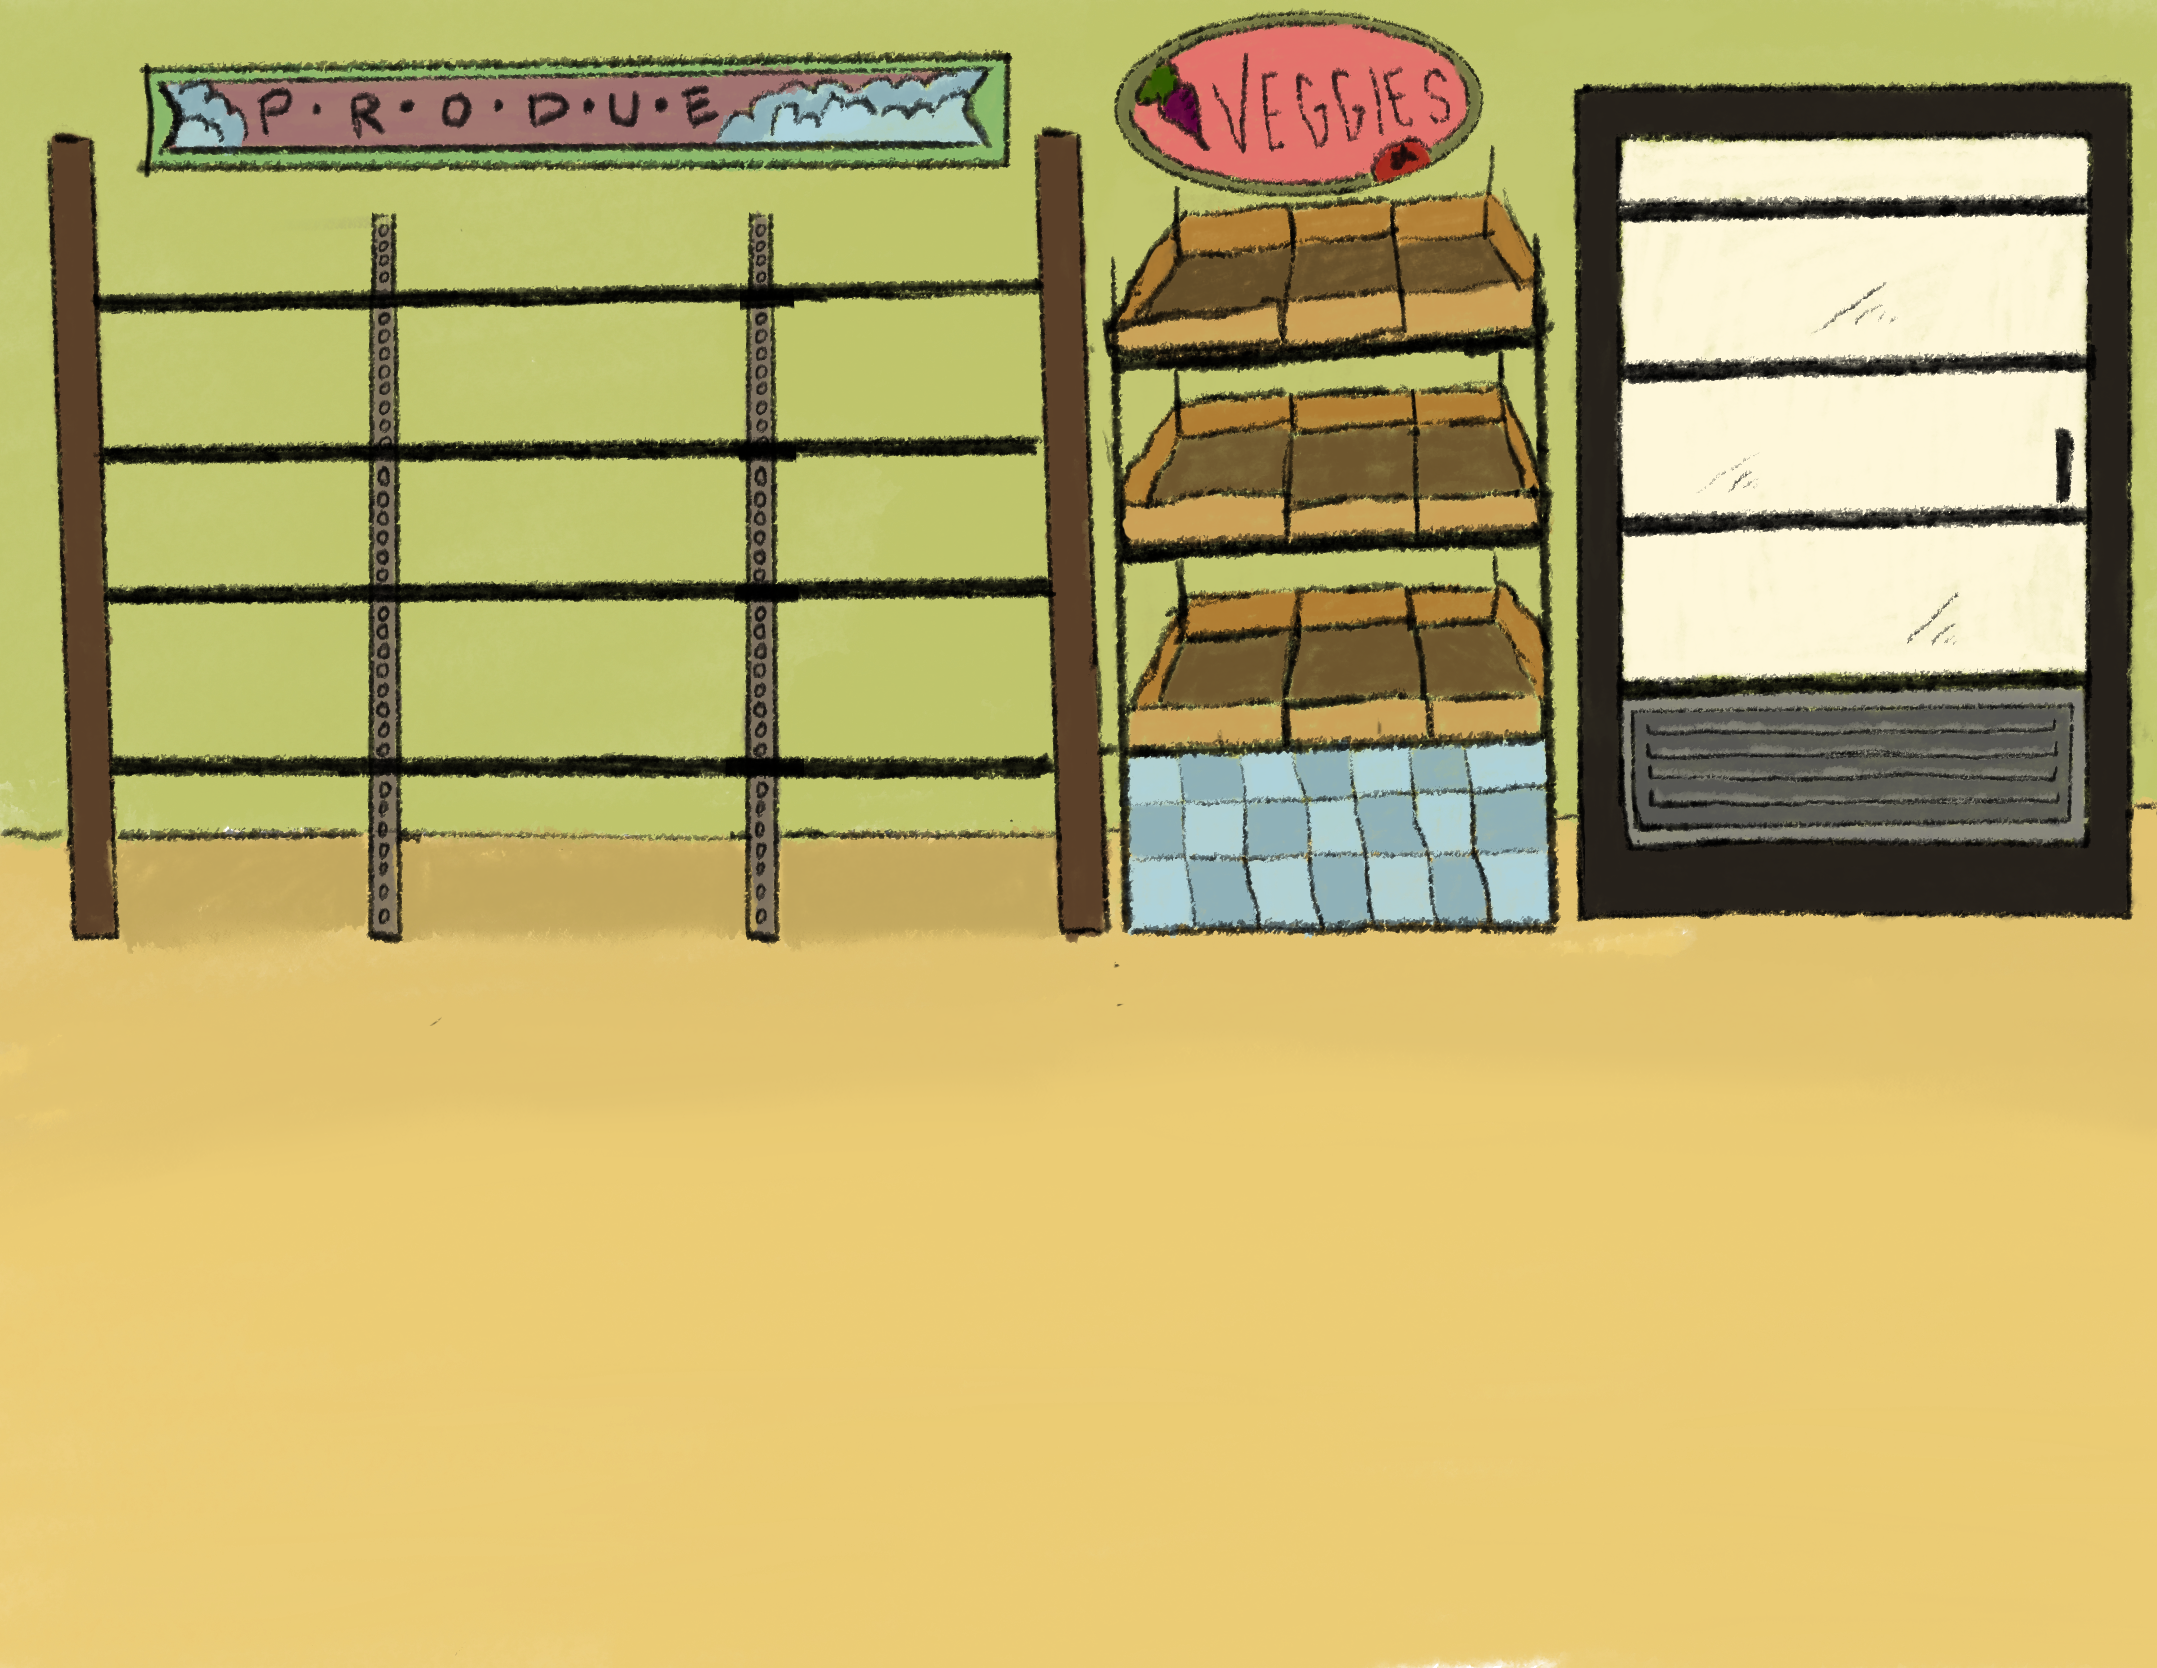 P·R·O·D·U·E
VEGGIES